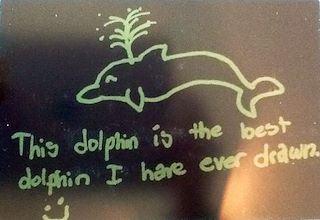 This dolphin is the best
dolphin I have ever drawn.